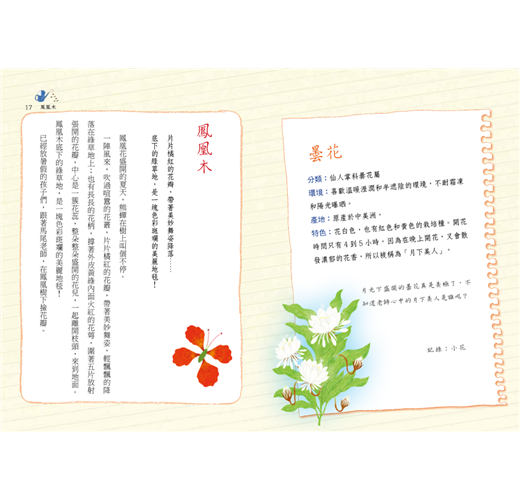 曇花
分類：仙人掌科曇花屬
環境：喜歡溫暖溼潤和半遮陰的環境，不耐霜凍
和陽光曝晒。
產地：原產於中美洲。
特色：花白色，也有紅色和黃色的栽培種。開花
時間只有4到5小時，因為在晚上開花，又會散
發濃郁的花香，所以被稱為「月下美人」。
月光下盛開的曇花真是美極了，不
知道老師心中的月下美人是誰呢？
記錄：小花
17 鳳凰木
鳳凰木
片片橘紅的花瓣，帶著美妙舞姿降落……
底下的綠草地，是一塊色彩斑斕的美麗地毯！
鳳凰花盛開的夏天，熊蟬在樹上叫個不停。
一陣風來，吹過喧囂的花叢，片片橘紅的花瓣，帶著美妙舞姿，輕飄飄的降
落在綠草地上；也有長長的花柄，撐著外皮黃綠內面火紅的花萼，圍著五片放射
張開的花瓣，中心是一簇花蕊，整朵整朵盛開的花兒，一起離開枝頭，來到地面。
鳳凰木底下的綠草地，是一塊色彩斑斕的美麗地毯！
已經放暑假的孩子們，跟著馬尾老師，在鳳凰樹下撿花瓣。